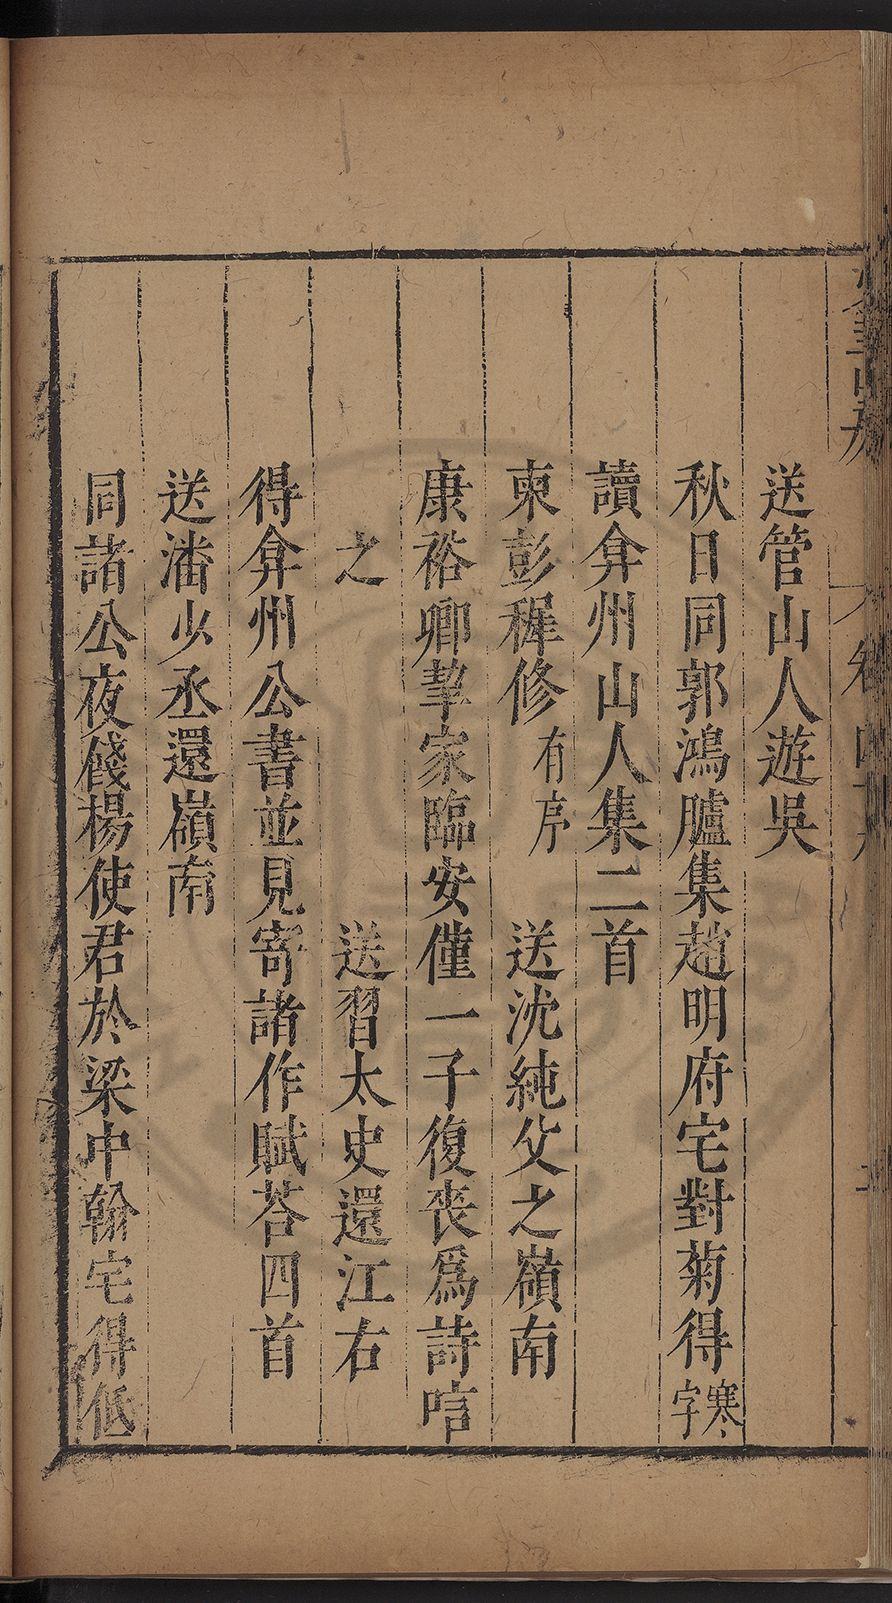 送管山人遊吳
秋日同郭鴻臚集趙明府宅對菊得寒字
讀弇州山人集二首
柬彭稺修有序　送沈純父之嶺南
康裕卿挈家臨安僅一子復喪爲詩唁
之　送習太史還江右
得弇州公書並見寄諸作賦荅四首
送潘少丞還嶺南
同諸公夜餞楊使君於梁中翰宅得低